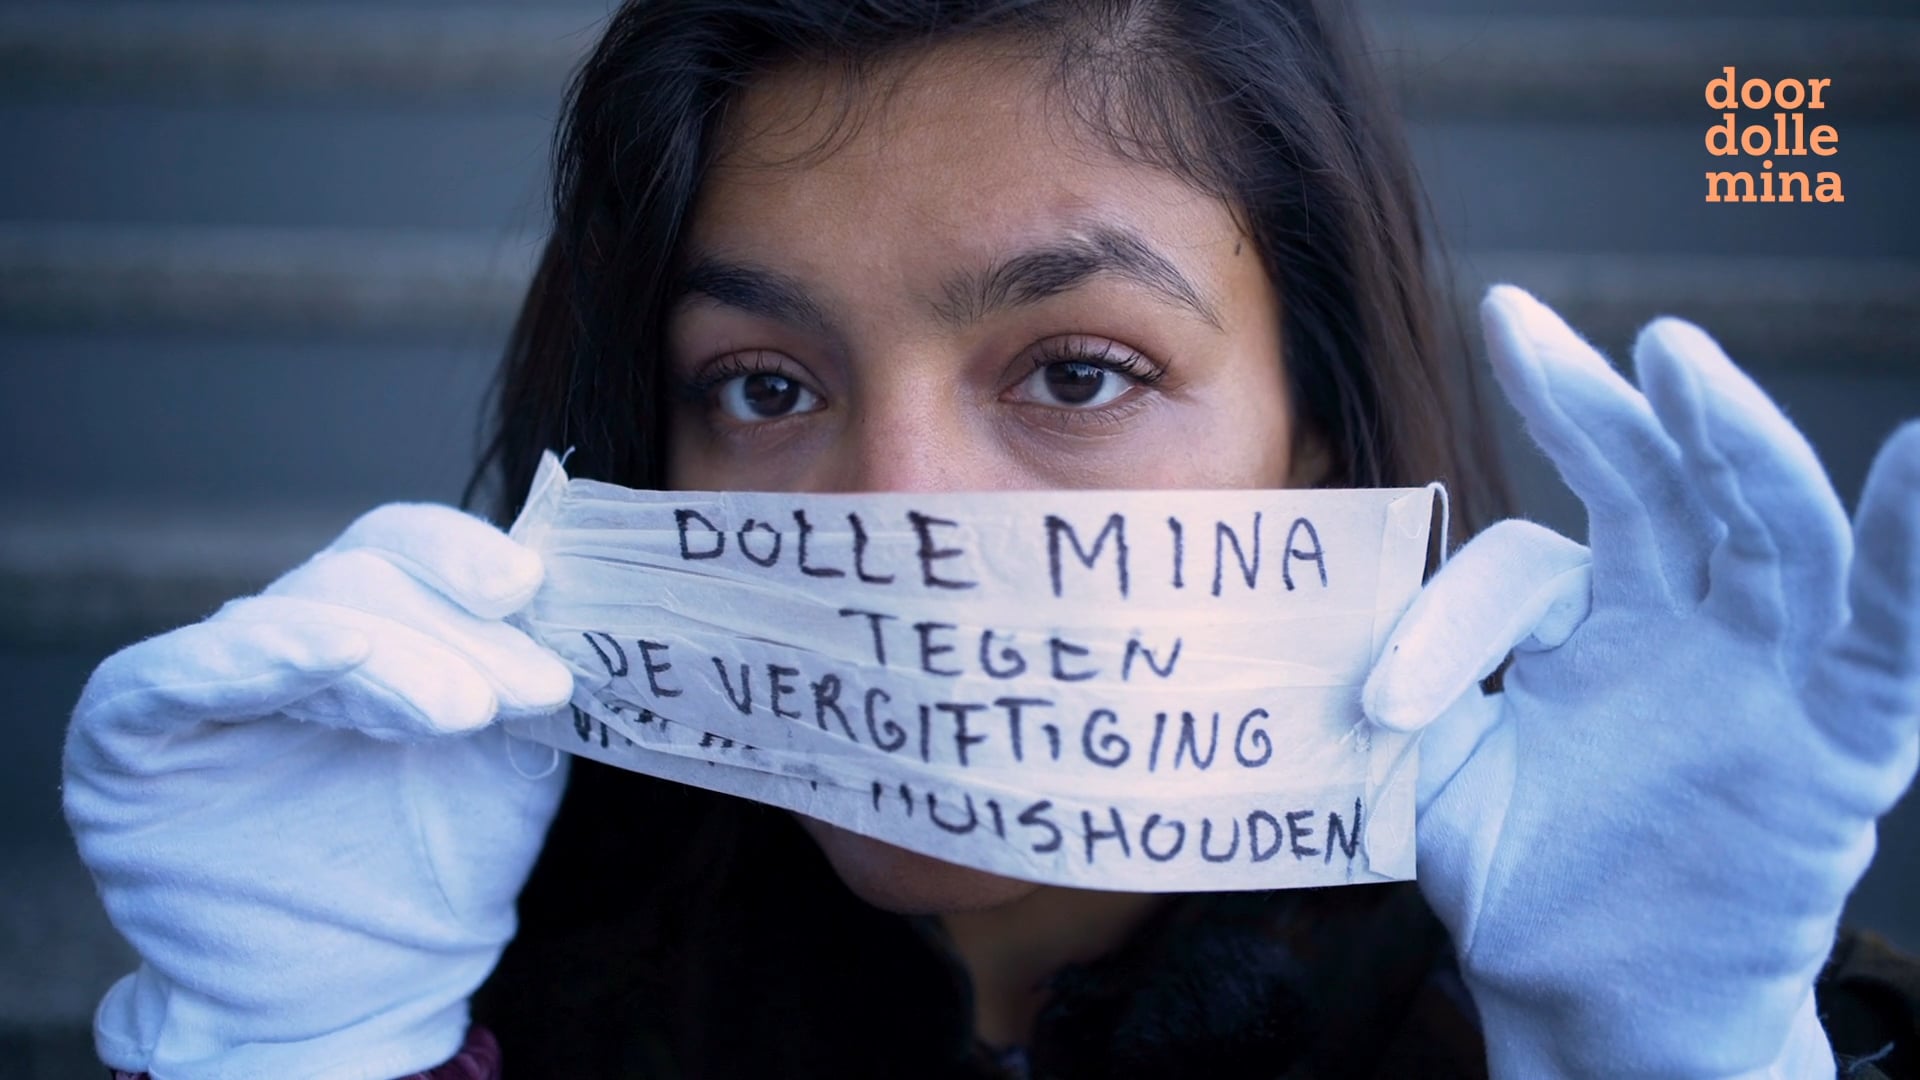 door
dolle
mina
DOLLE MINA
TEGEN
DE VERGIFTIGING
HUISHOUDEN